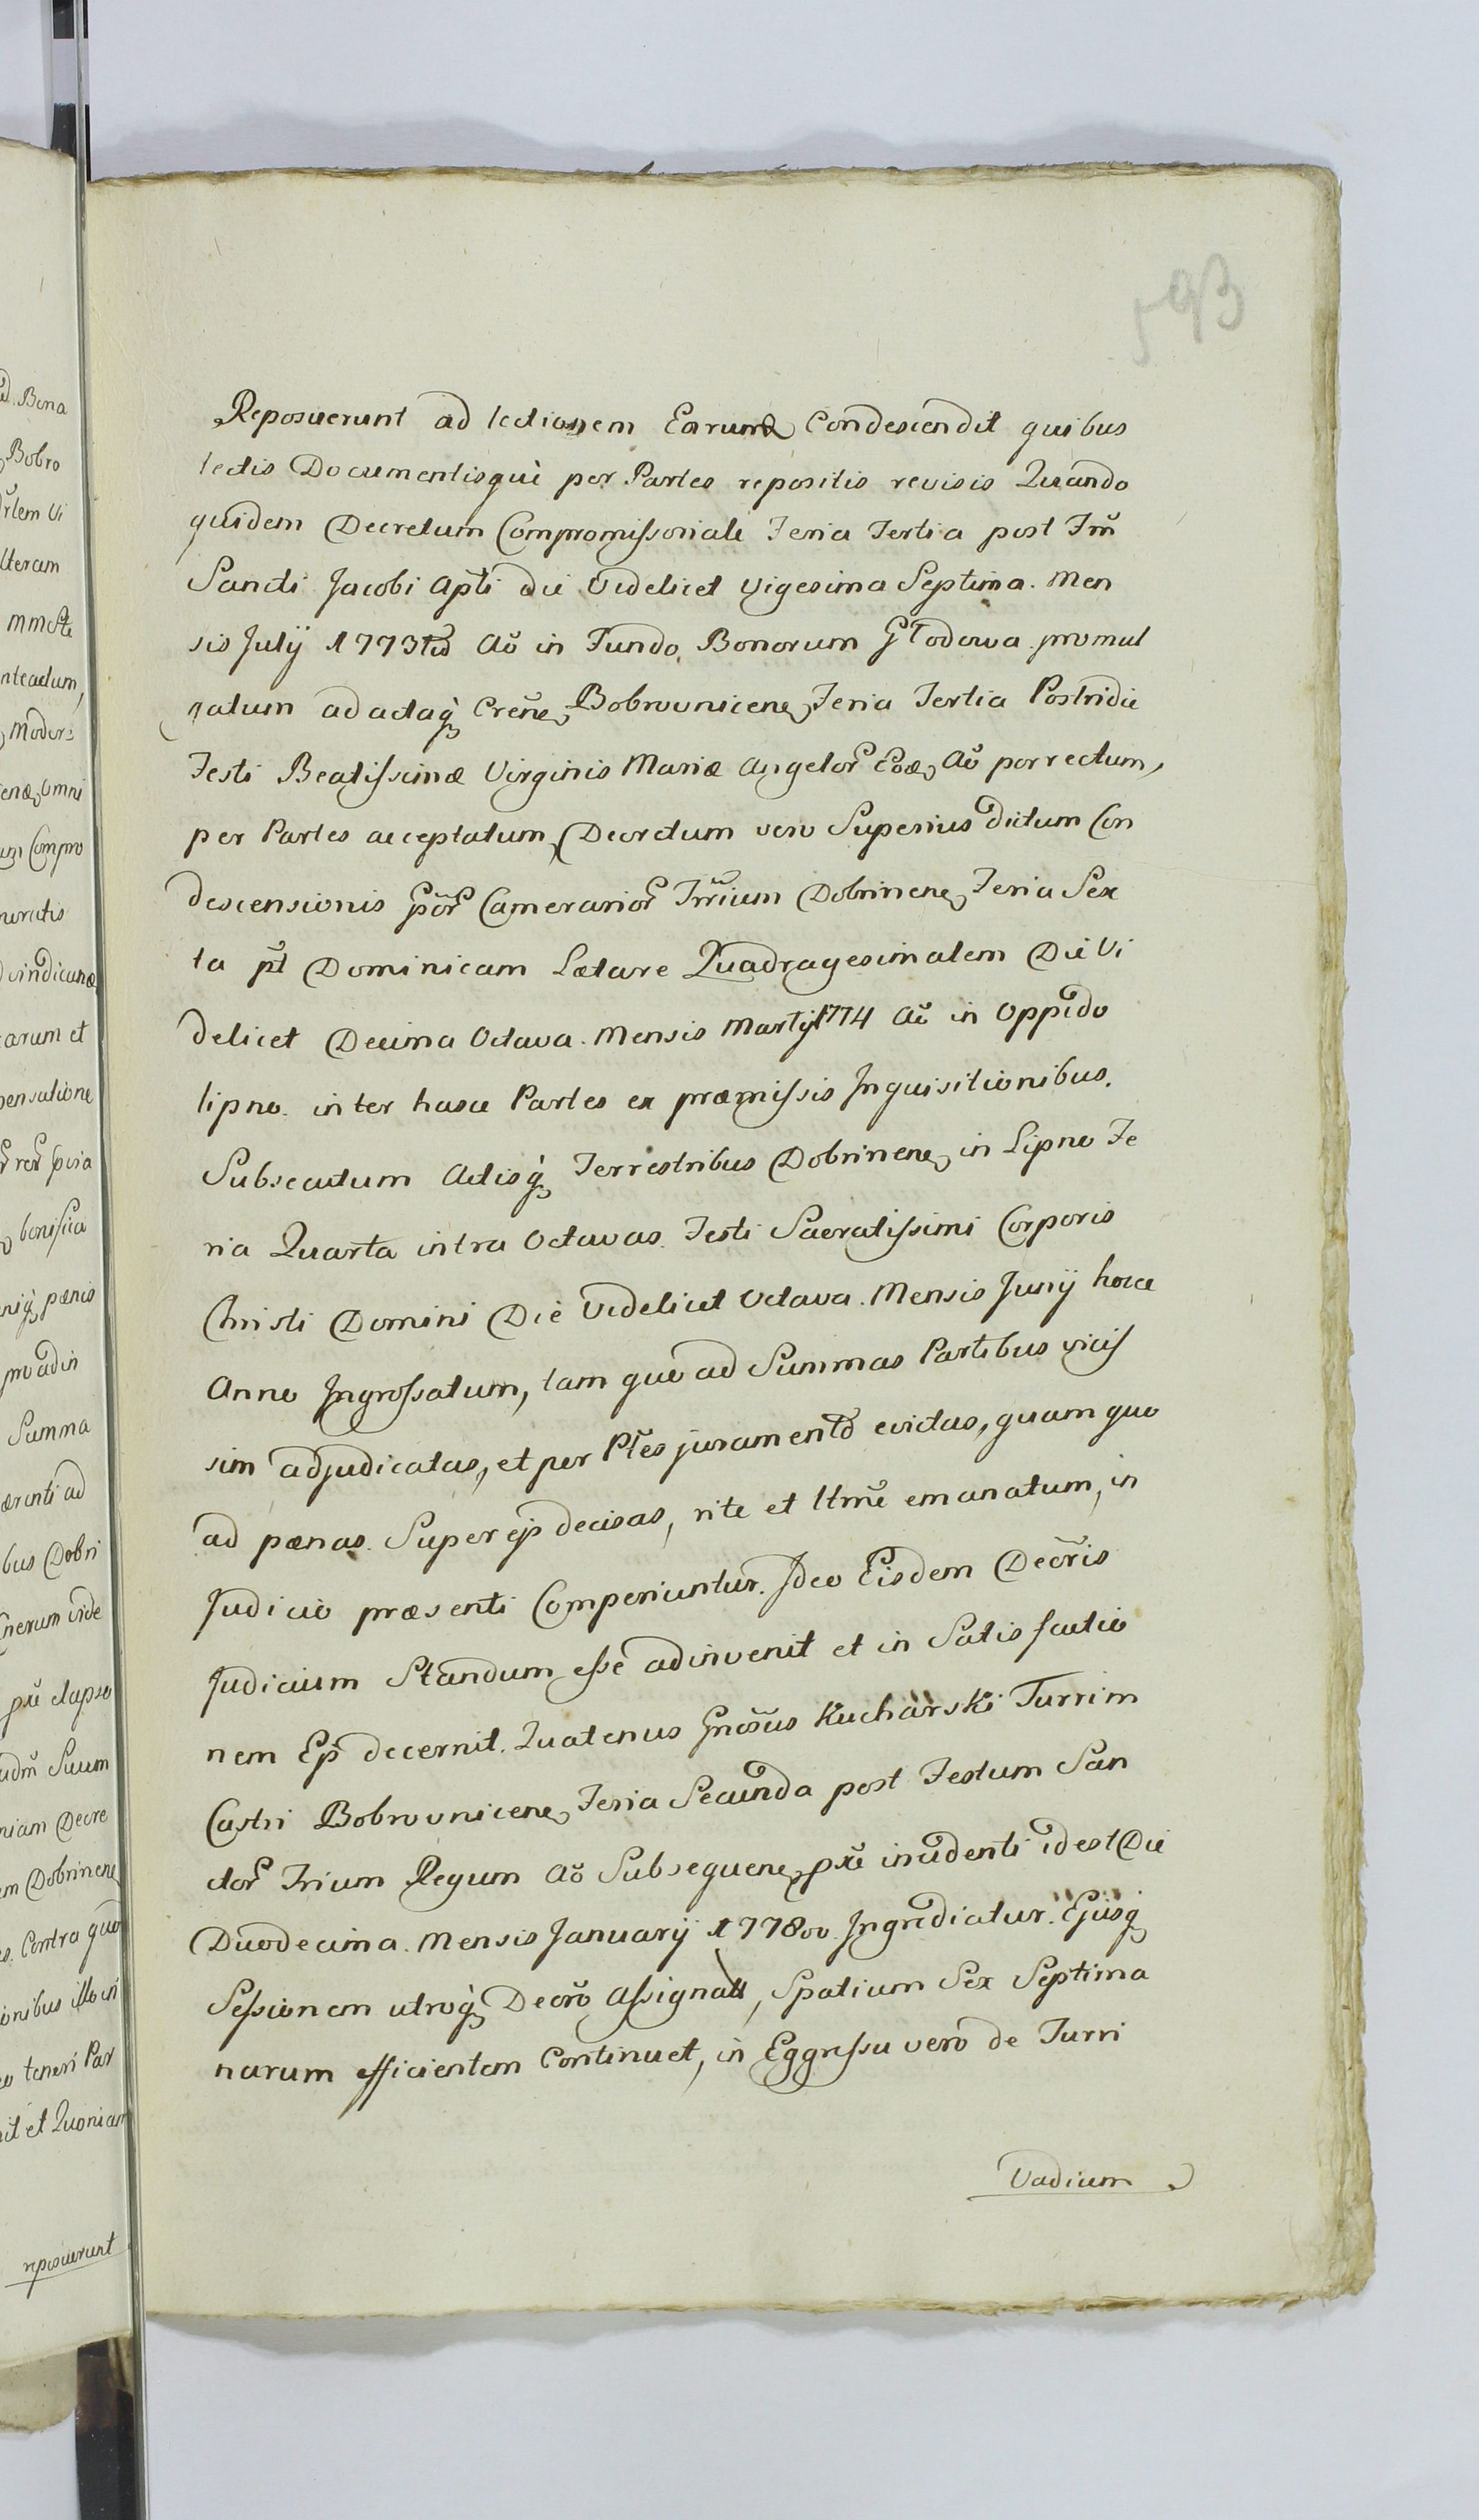 593
Reposuerunt ad lectionem Earund Condescendit quibus
lectis Documentisquè per Partes repositis revisis Quando
quidem Decretum Compromissoriale Feria Tertia post Fm̃
Sancti Jacobi Apti die Videlicet Vigesima Septima. Men
sis Julÿ 1773tio Aõ in Fundo Bonorum Głodowa promul
gatum ad actaq̀ Creñe Bobrovnicene Feria Tertia Postridie
Festi Beatissimæ Virginis Mariæ Angelor Eode Aõ porrectum,
per Partes acceptatum, Decretum vero Superius dictum Con
descensionis Gõr Camerarior Trr̃ium Dobrinene Feria Sex
ta p̃t Dominicam Lætare Quadragesimalem Die Vi
delicet Decima Octava. Mensis Martÿ 1774 Aõ in Oppido
lipno. inter hasce Partes ex præmissis Inquisitionibus.
Subsecutum Actisq̀ Terrestribus Dobrinene in Lipno Fe
ria Quarta intra Octavas. Festi Sacratissimi Corporis
Christi Domini Die Videlicet Octava. Mensis Junÿ hocce
Anno Ingrossatum, tam quo ad Summas Partibus vicis
sim adjudicatas, et per Ptes juramento evictas, quam quo
ad pænas. Super ejs decisas, rite et ltm̃e emanatum, in
Judicio præsenti Comperiuntur. Ideo Eisdem Decr̃is
Judicium Standum esse adinvenit et in Satis factio
nem Ep̃ decernit. Quatenus Gnõsus Kucharski Turrim
Castri Bobrovnicene Feria Secunda post Festum San
ctor Trium Regum Aõ Subsequene px̃e incidenti id est Die
Duodecima. Mensis Januarÿ 1778vo. Ingrediatur. Ejusq̀
Sessionem utroq̀ Decr̃o Assignatt, Spatium Sex Septima
narum efficientem Continuet, in Eggressu vero de Turri
Vadium
ad. Bona
Bobro
lteram
nteactum,
Compro
vindicane
carum et
pensatione
pænis
pro adin
Summa
ærenti ad
bus Dobri
nerum vide
px̃e elapso
Suum
niam Decre
em Dobrinene
Contra quo
onibus illo in
teneri Par
nit et Quoniam
reposuerunt